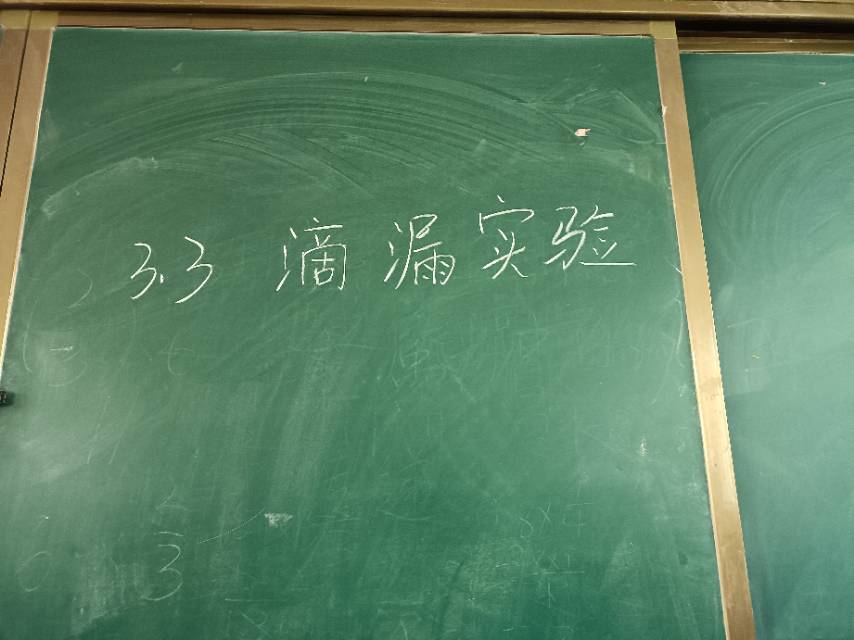 3.3 滴漏实验
3